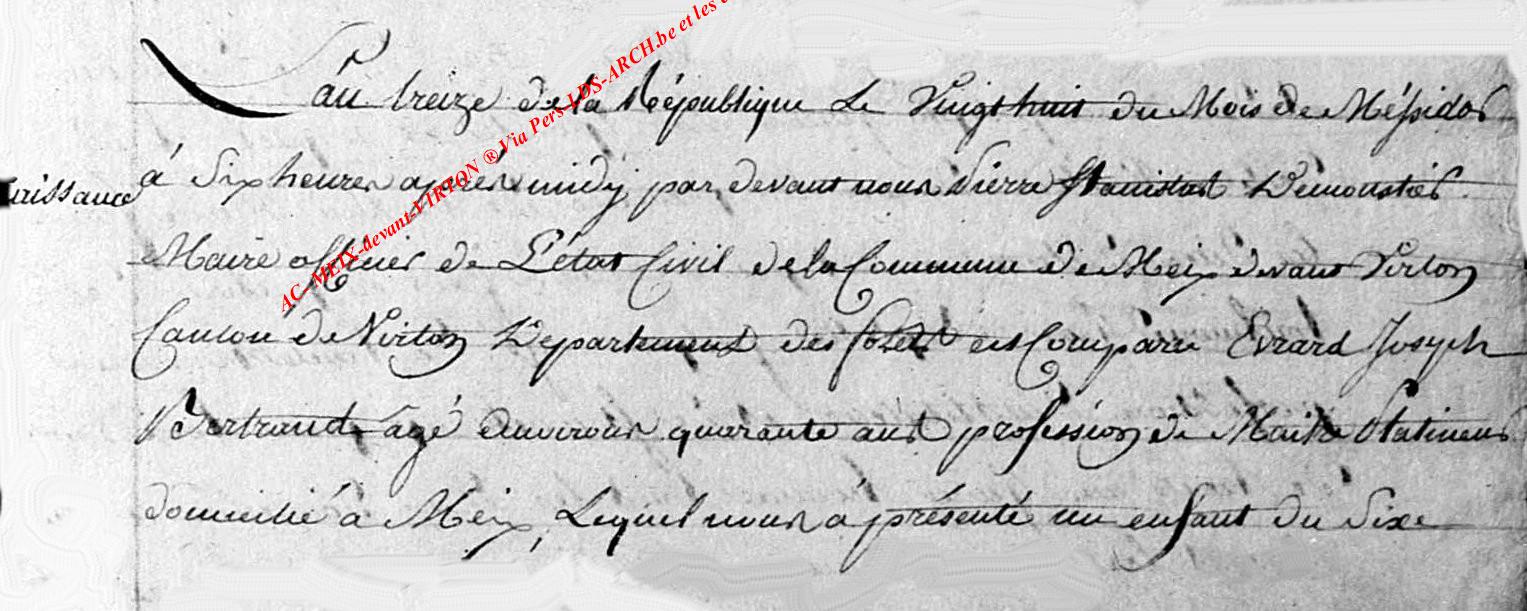 L'an treize de la République Le Vingt huit du Mois de Méssidor
à Six heures aprés midy par devant nous Pierre Stanislas Demoustier
Naissance
Maire officier de L'état Civil de la Commune de Meix devant Virton
Canton de Virton Departement des forets est Comparu Evrard Joseph
Bertrand agé denviron quarante ans profession de Maitre Platineur
domicilié à Meix, Lequel nous à présenté un enfant du Sixe
AC-MEIX-devant-VIRTON ® Via Pers LDS-ARCH.be et les